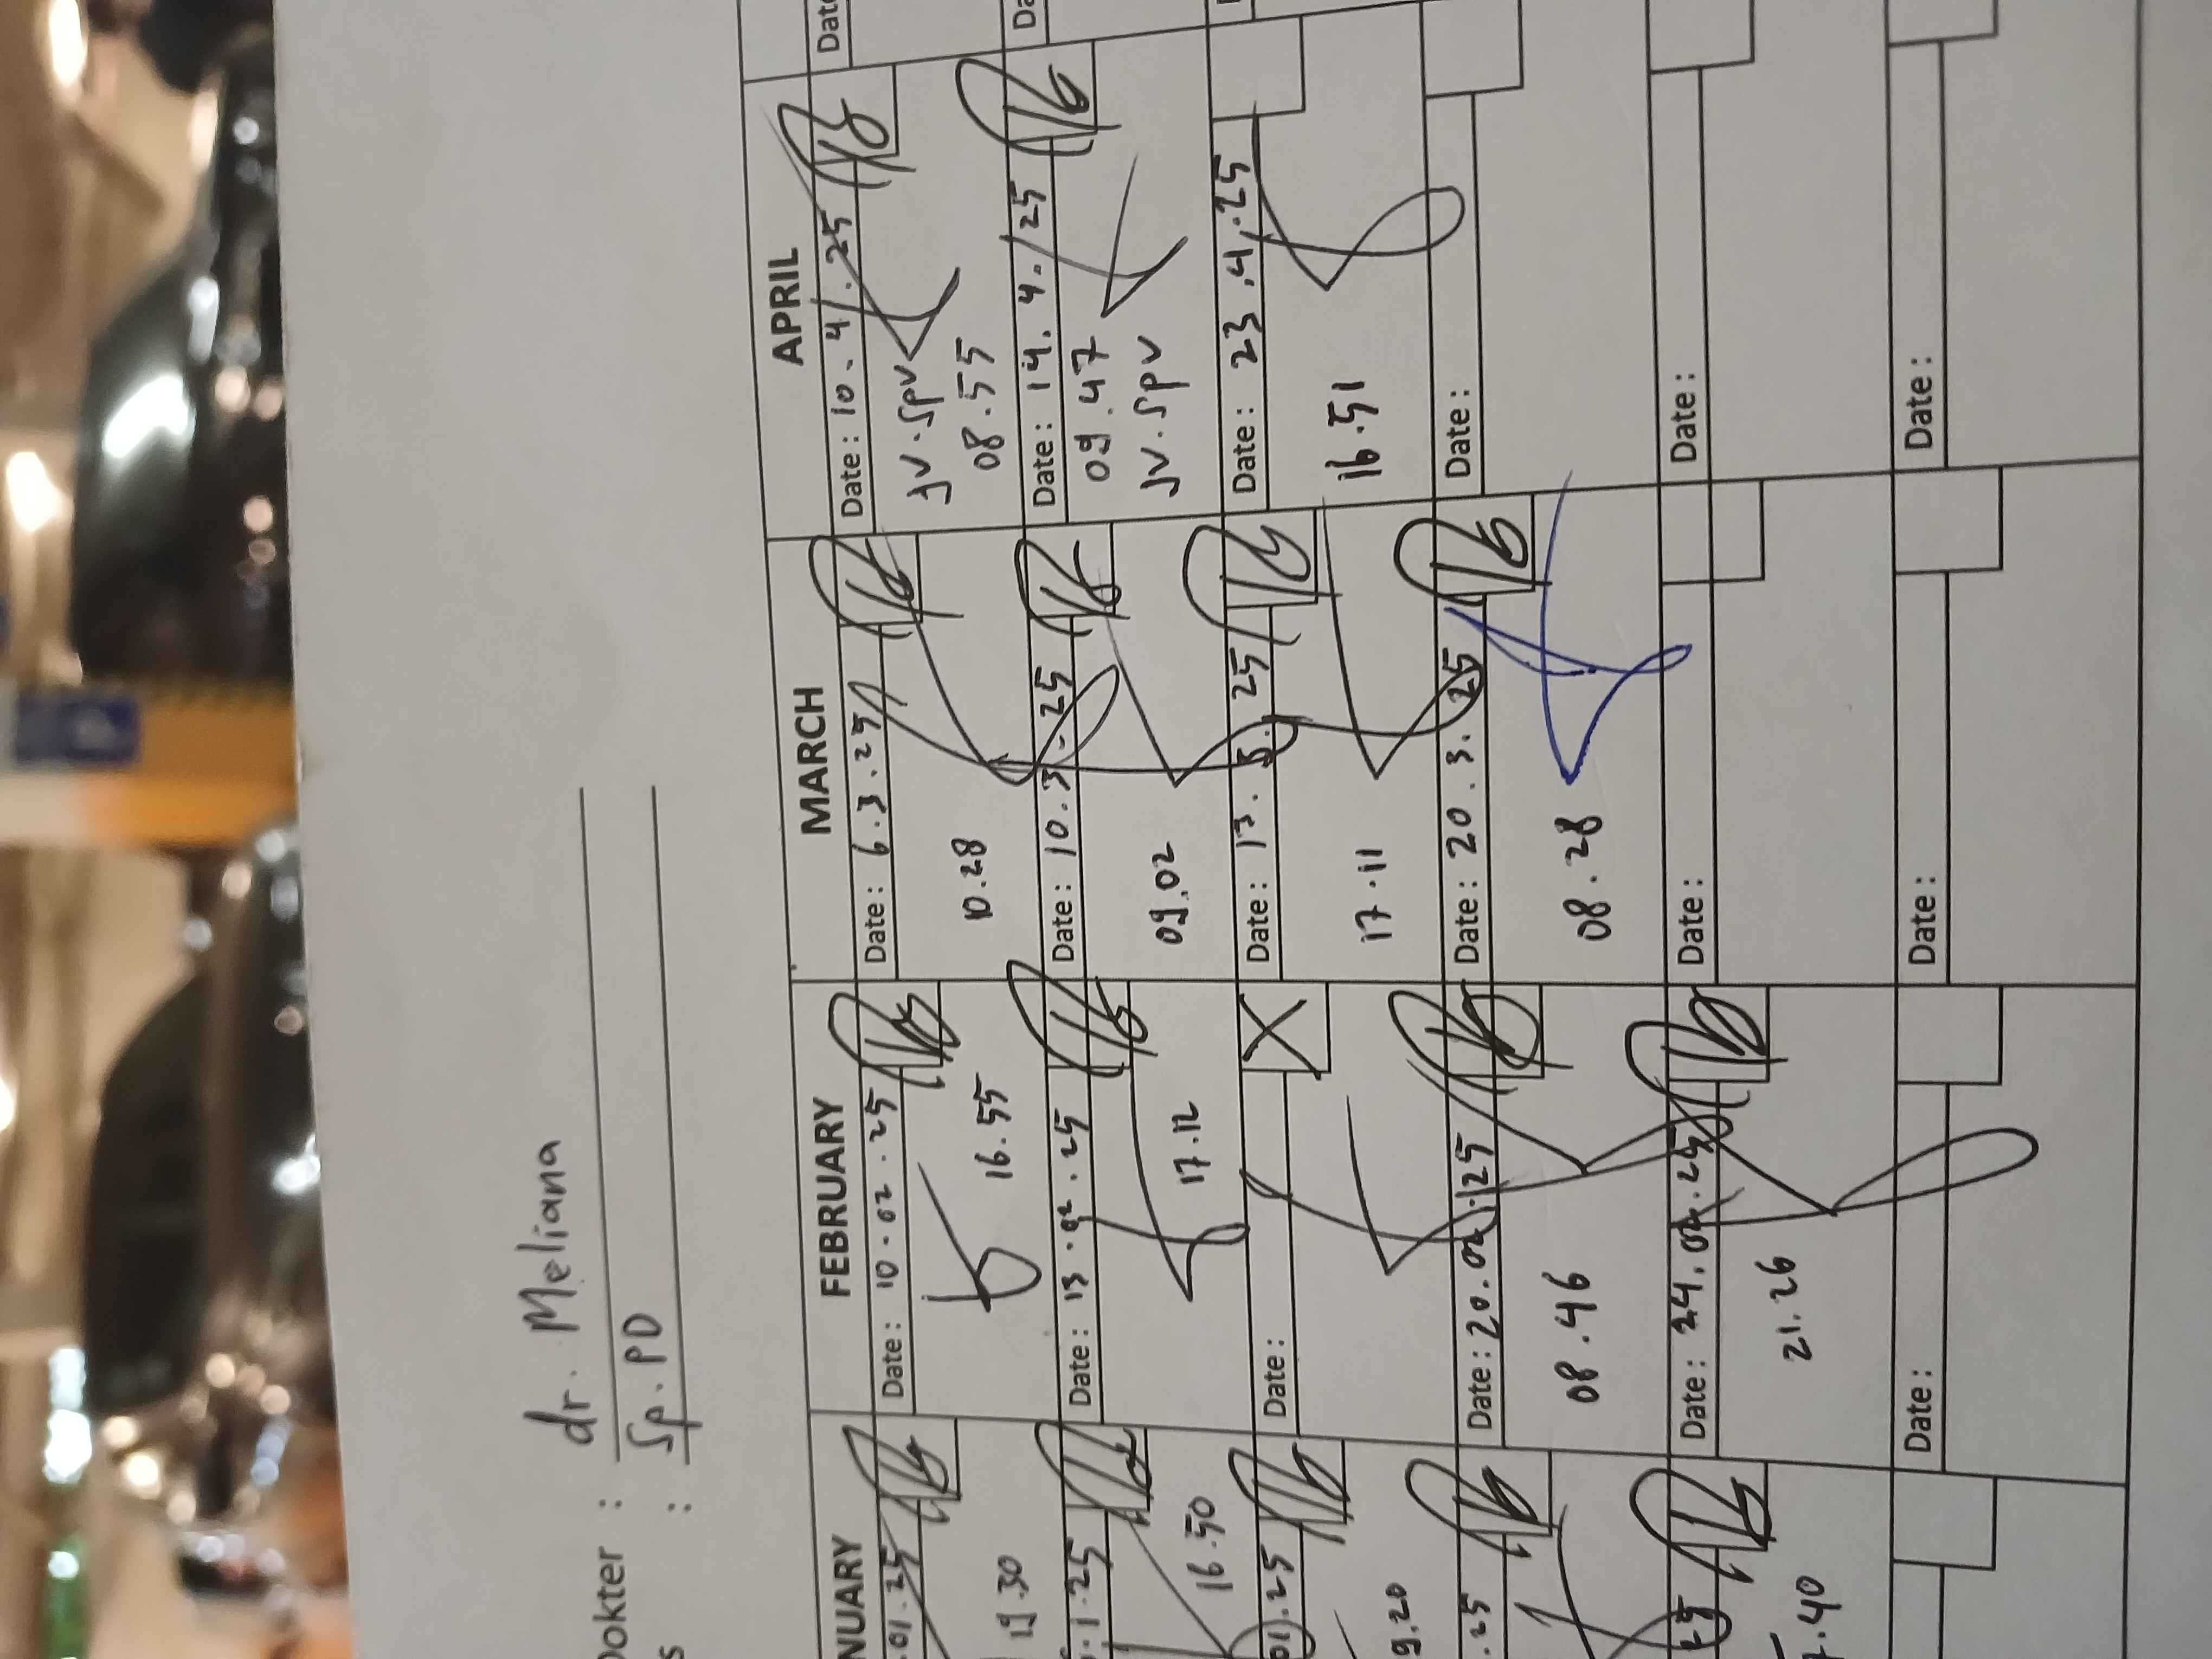 Dokter : dr. Meliana
s : Sp. PD
NUARY FEBRUARY MARCH APRIL
.01.25 Date: 10.02.25 Date: 6.3.25 Date: 10.4.25 Date
19.30 16.55 10.28 Jv.Spv
08.55
.1.25 Date: 13.02.25 Date: 10.3.25 Date: 14.4.25 Da
16.50 17.12 09.02 09.47
Jv.Spv
01.25 Date: Date: 13.3.25 Date: 23.4.25
9.20 17.11 16.51
.25 Date: 20.02.25 Date: 20.3.25 Date:
08.46 08.28
25 Date: 24.02.25 Date: Date:
.40 21.26
Date: Date: Date: